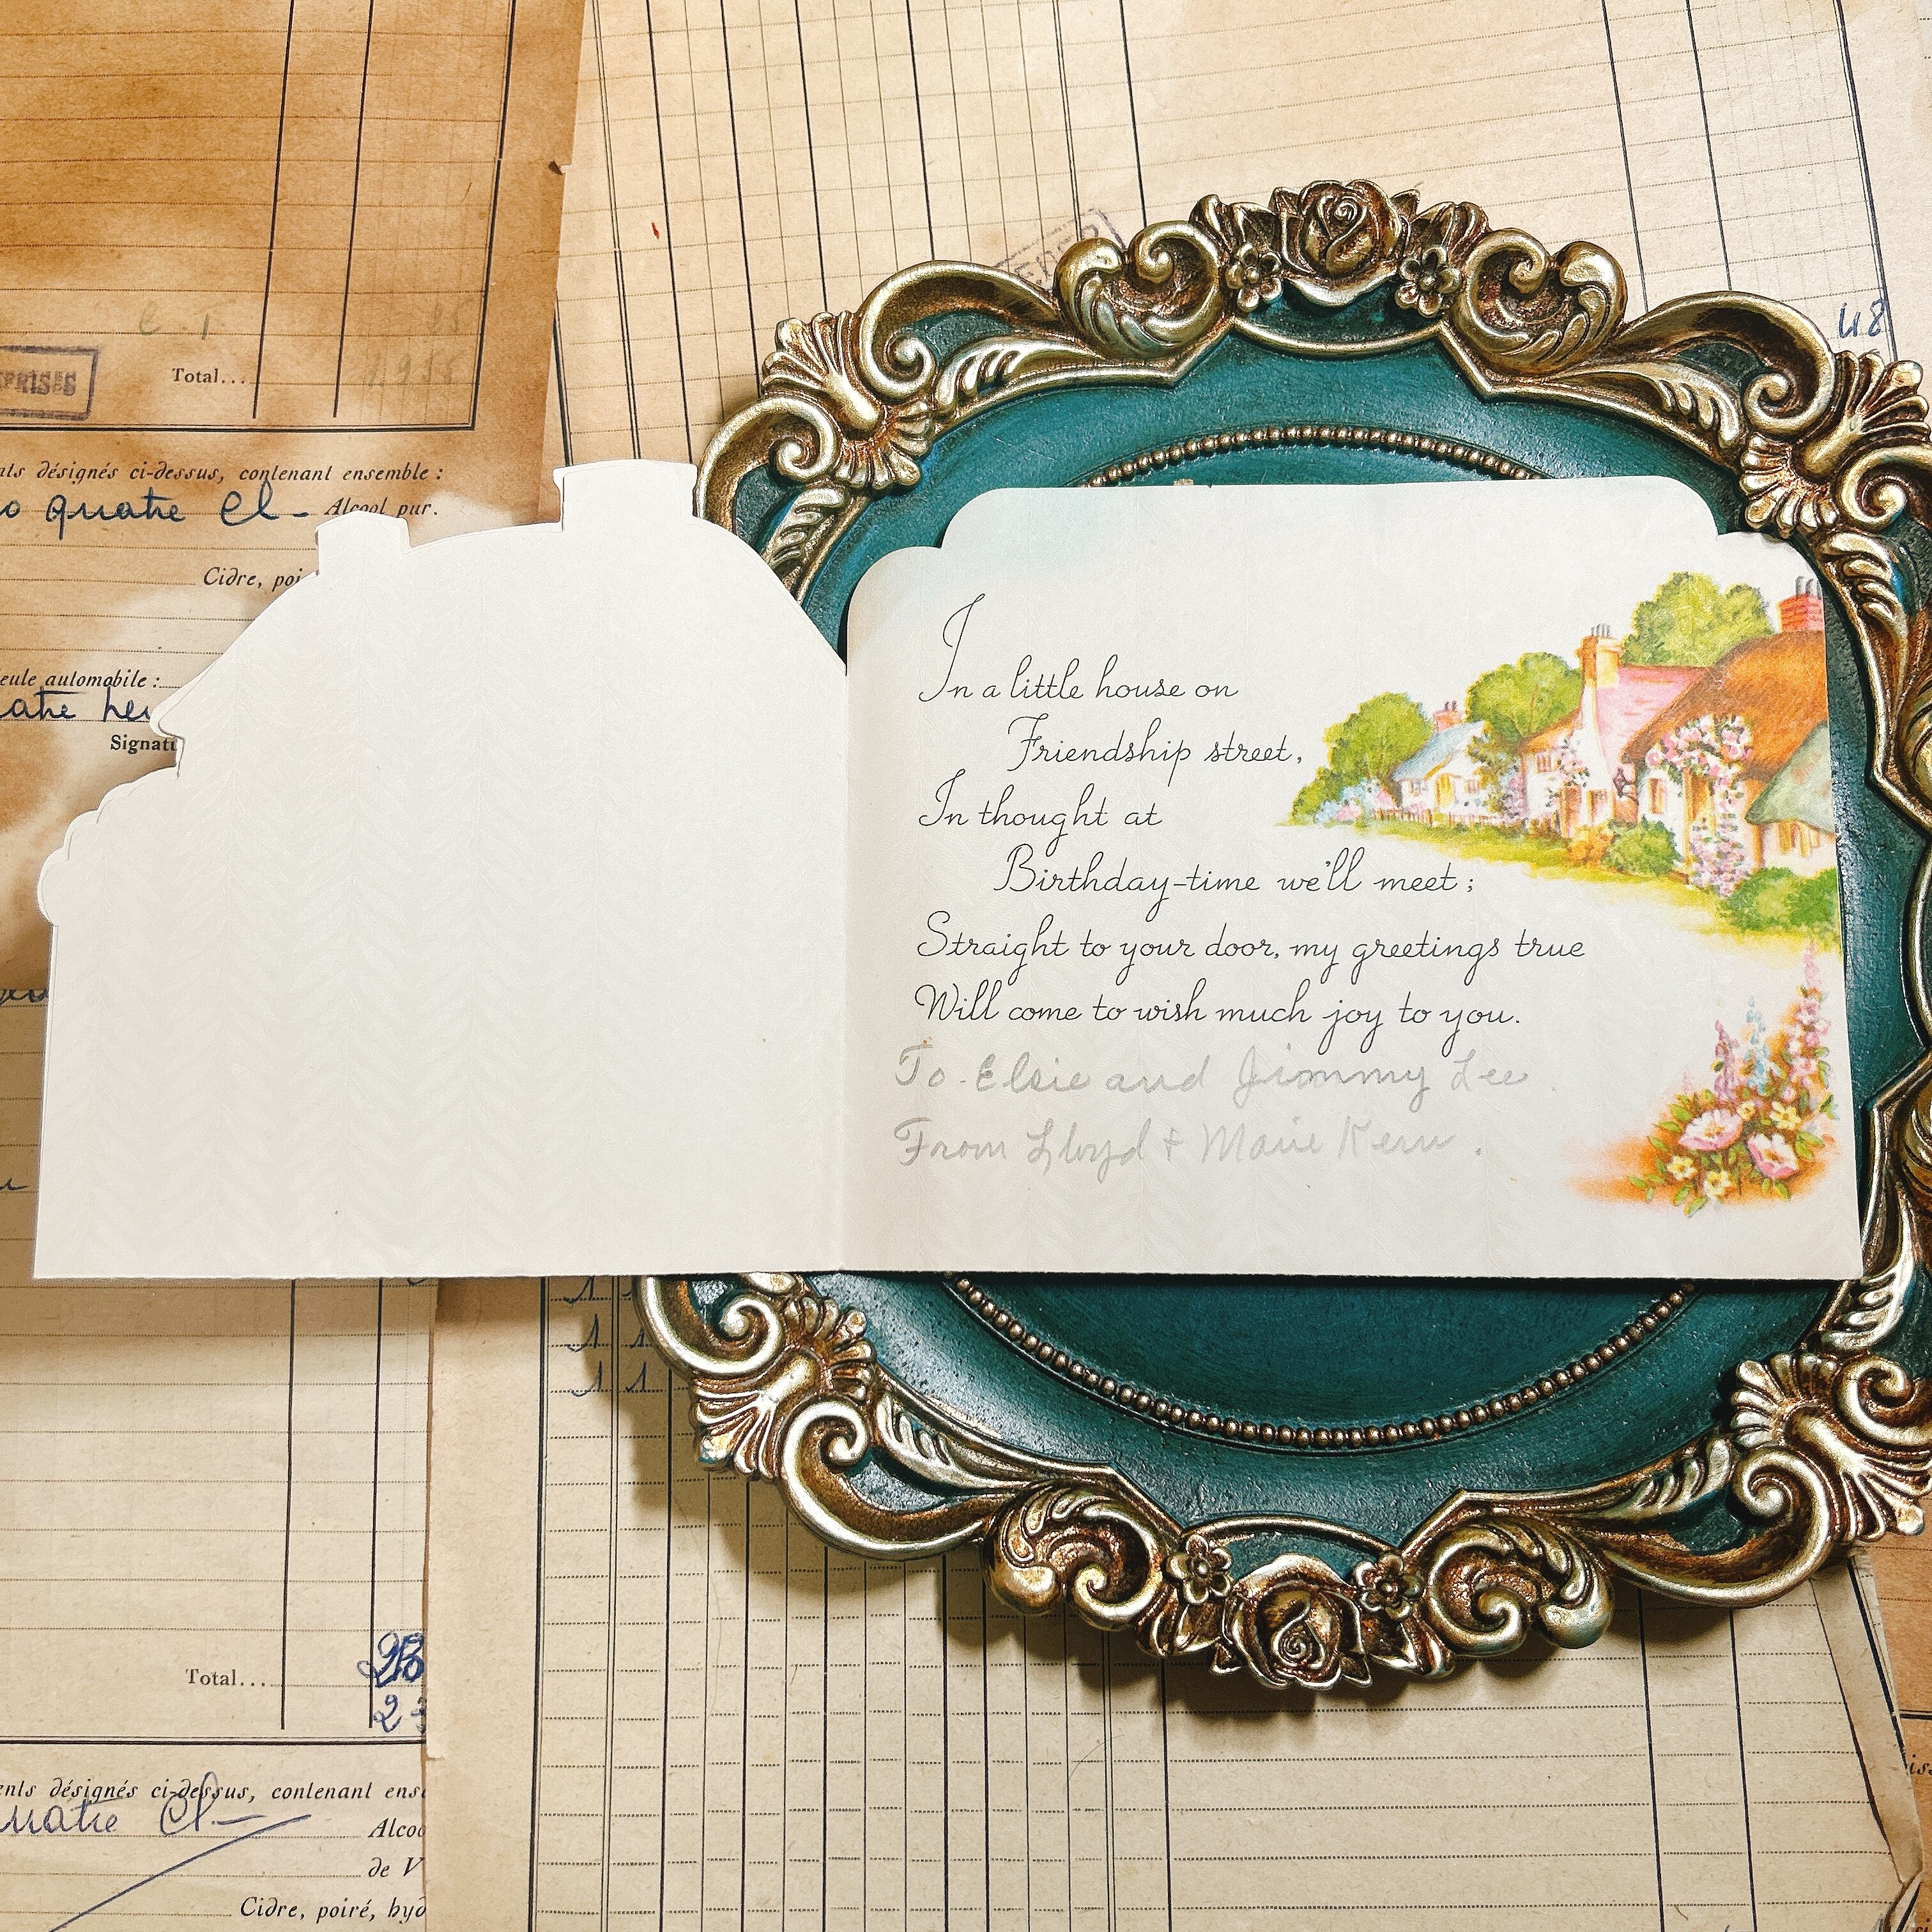 Total...
PRISES
désignés ci-dessus, contenant ensemble :
quatre Cl- Alcool pur.
Cidre,
automobile :
48
In a little house on
Friendship street,
In thought at
Birthday-time we'll meet ;
Straight to your door, my greetings true
Will come to wish much joy to you.
To Elsie and Jimmy Lee.
From Lloyd & Marie Kern.
1 1
1 1
1 1
Total...
désignés ci-dessus, contenant
Cl-
de V
Cidre, poiré,